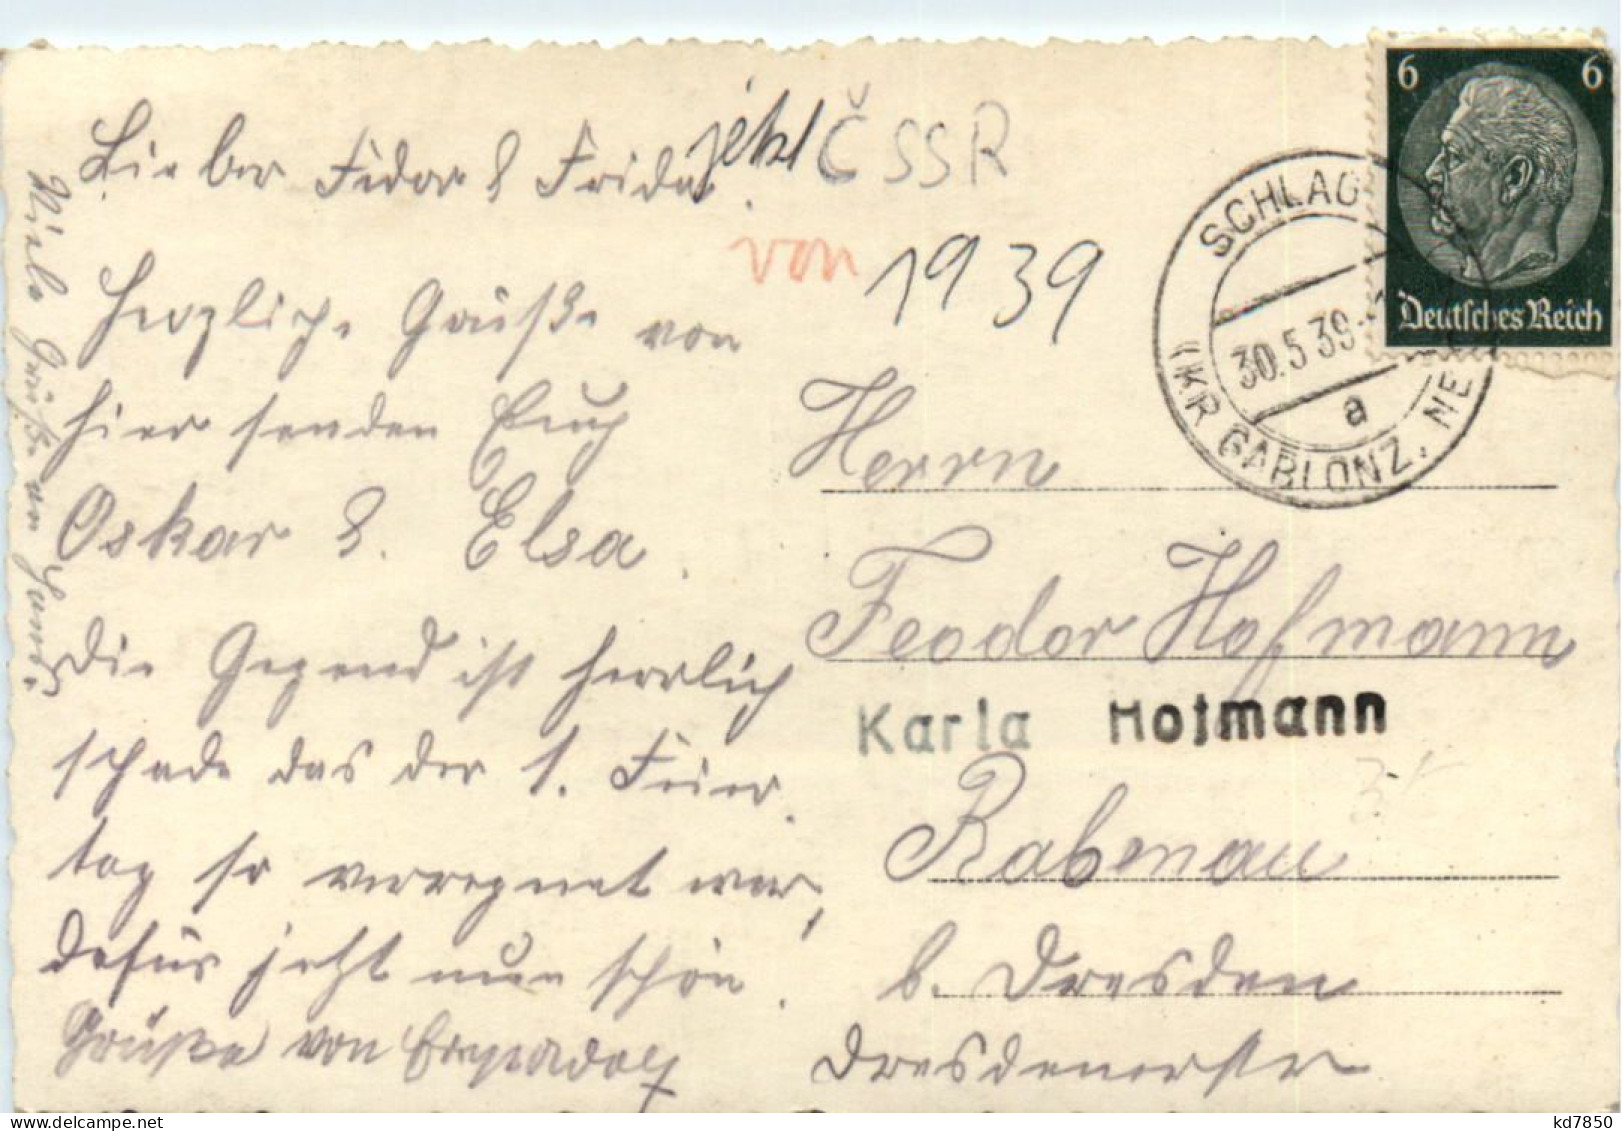 Lieber Fedor & Frida.
jetzt ČSSR
von 1939
Herzliche Grüße von
hier senden Euch
Oskar & Elsa.
Die Gegend ist herrlich
schade das der 1. Feier
tag so verregnet war,
dafür jetzt nun schön.
Grüße von
Viele Grüße von
Herrn
Feodor Hofmann
Karla Hofmann
Rabenau
b. Dresden
Dresdenerstr
6 6
Deutsches Reich
SCHLAG
30.5.39
a
(KR GABLONZ, NE
kd7850